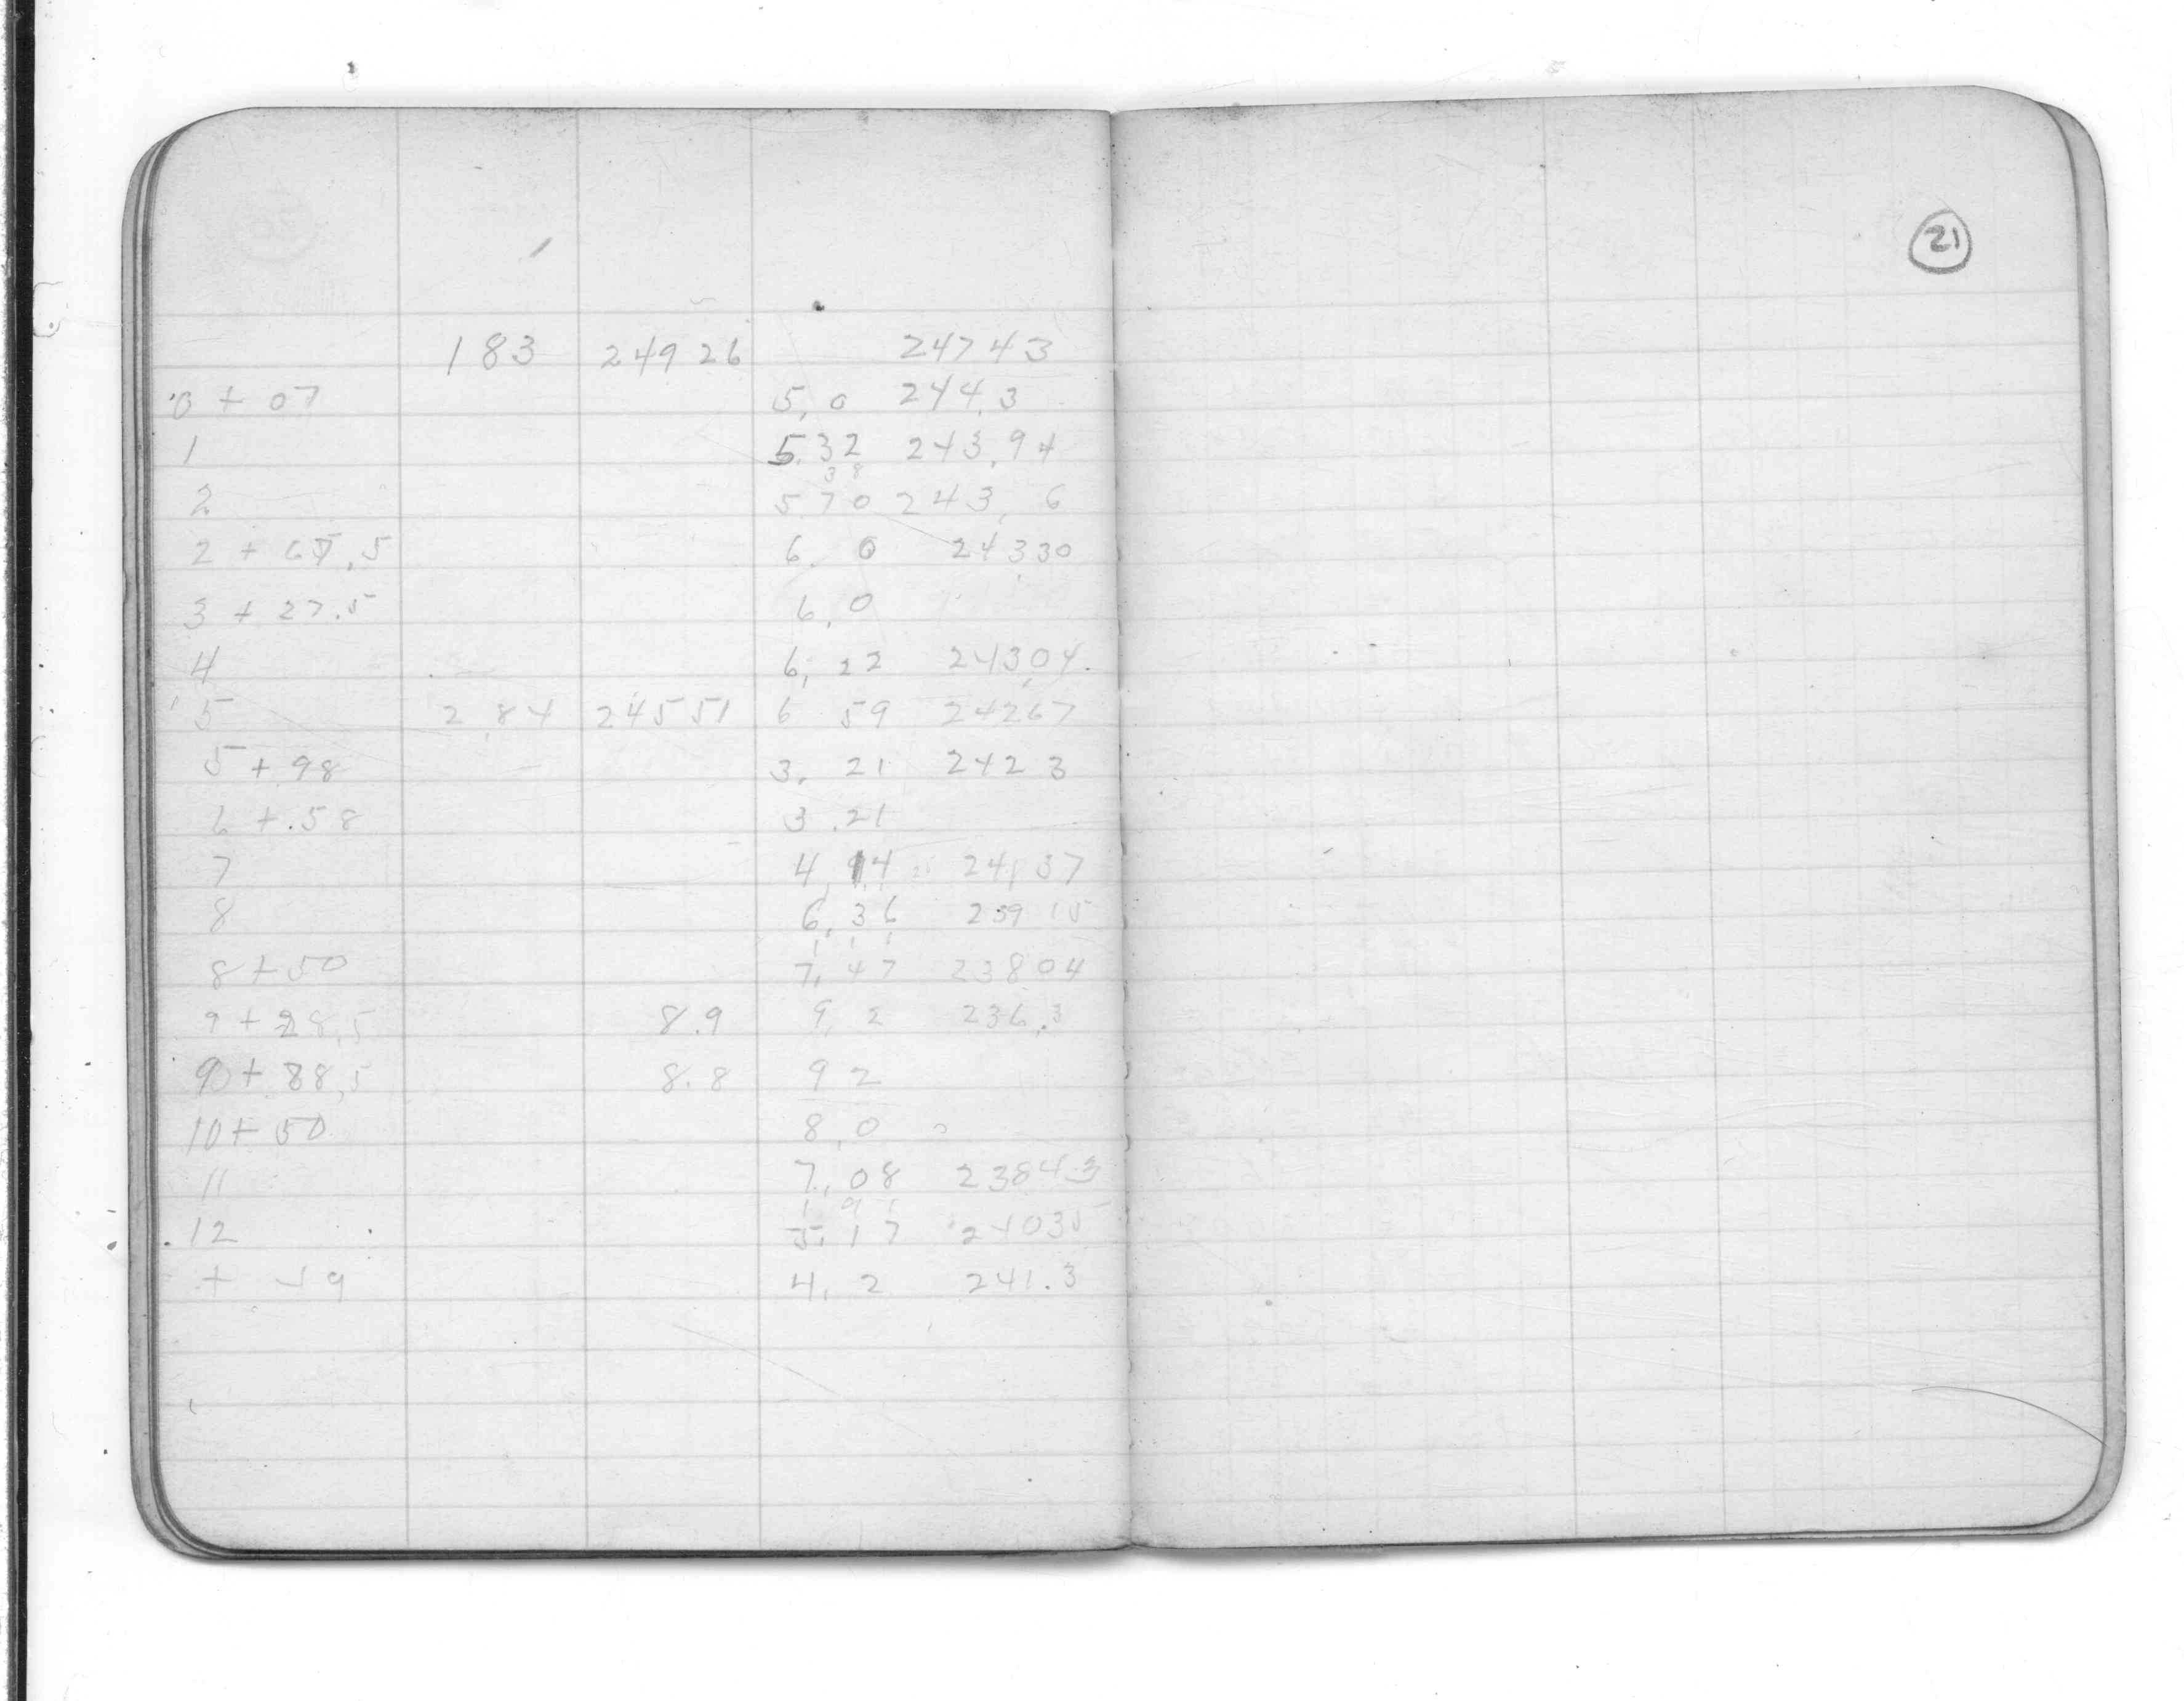 183 24926 24743
0 + 07 5,0 244.3
1 5.32 243.94
38
2 5 70 243, 6
2 + 67.5 6. 0 24330
3 + 27.5 6,0
4 6, 22 24304.
5 2 84 24551 6 59 24267
5 + 98 3. 21 242 3
6 + .58 3 .21
7 4, 14 24137
8 6,36 239 15
1 1 1
8 + 50 7, 47 23804
9 + 28.5 8.9 9, 2 236.3
9 + 88,5 8.8 9 2
10 + 50 8,0
11 7,08 23843
1 9 1
12 5,17 24035
+ 49 4, 2 241.3
21